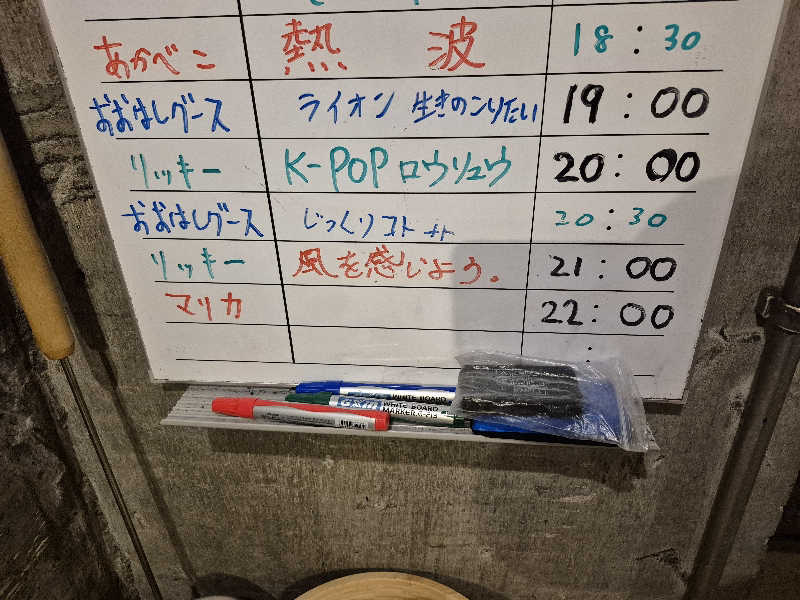 あかべこ 熱波 18:30
おおはしグース ライオン 生きのこりたい 19:00
リッキー K-POP ロウリュウ 20:00
おおはしグース じっくりコトコト 20:30
リッキー 風を感じよう。 21:00
マリカ 22:00
:
WHITE BOARD
WHITE BOARD
MARKER